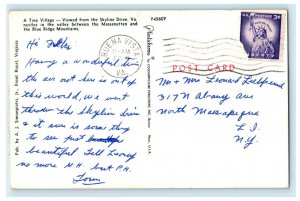 A Tiny Village — Viewed from the Skyline Drive, Va.
nestles in the valley between the Massanutten and
the Blue Ridge Mountains.
P45609
Hi Folks
Having a wonderful time
this air out here is out of
this world, we went
through the Skyline drive
& it sure is some thing
to see just
beautiful. Tell Laurey
no more N.H. but P.A.
Love
BUENA VISTA
VA.
AM
U.S. POSTAGE 3¢
LIBERTY
POST CARD
Mr + Mrs Leonard
317 N Albany Ave
North Massapequa
L.I.
N.Y.
Pub. by A. J. Front Royal, Virginia
Plastichrome